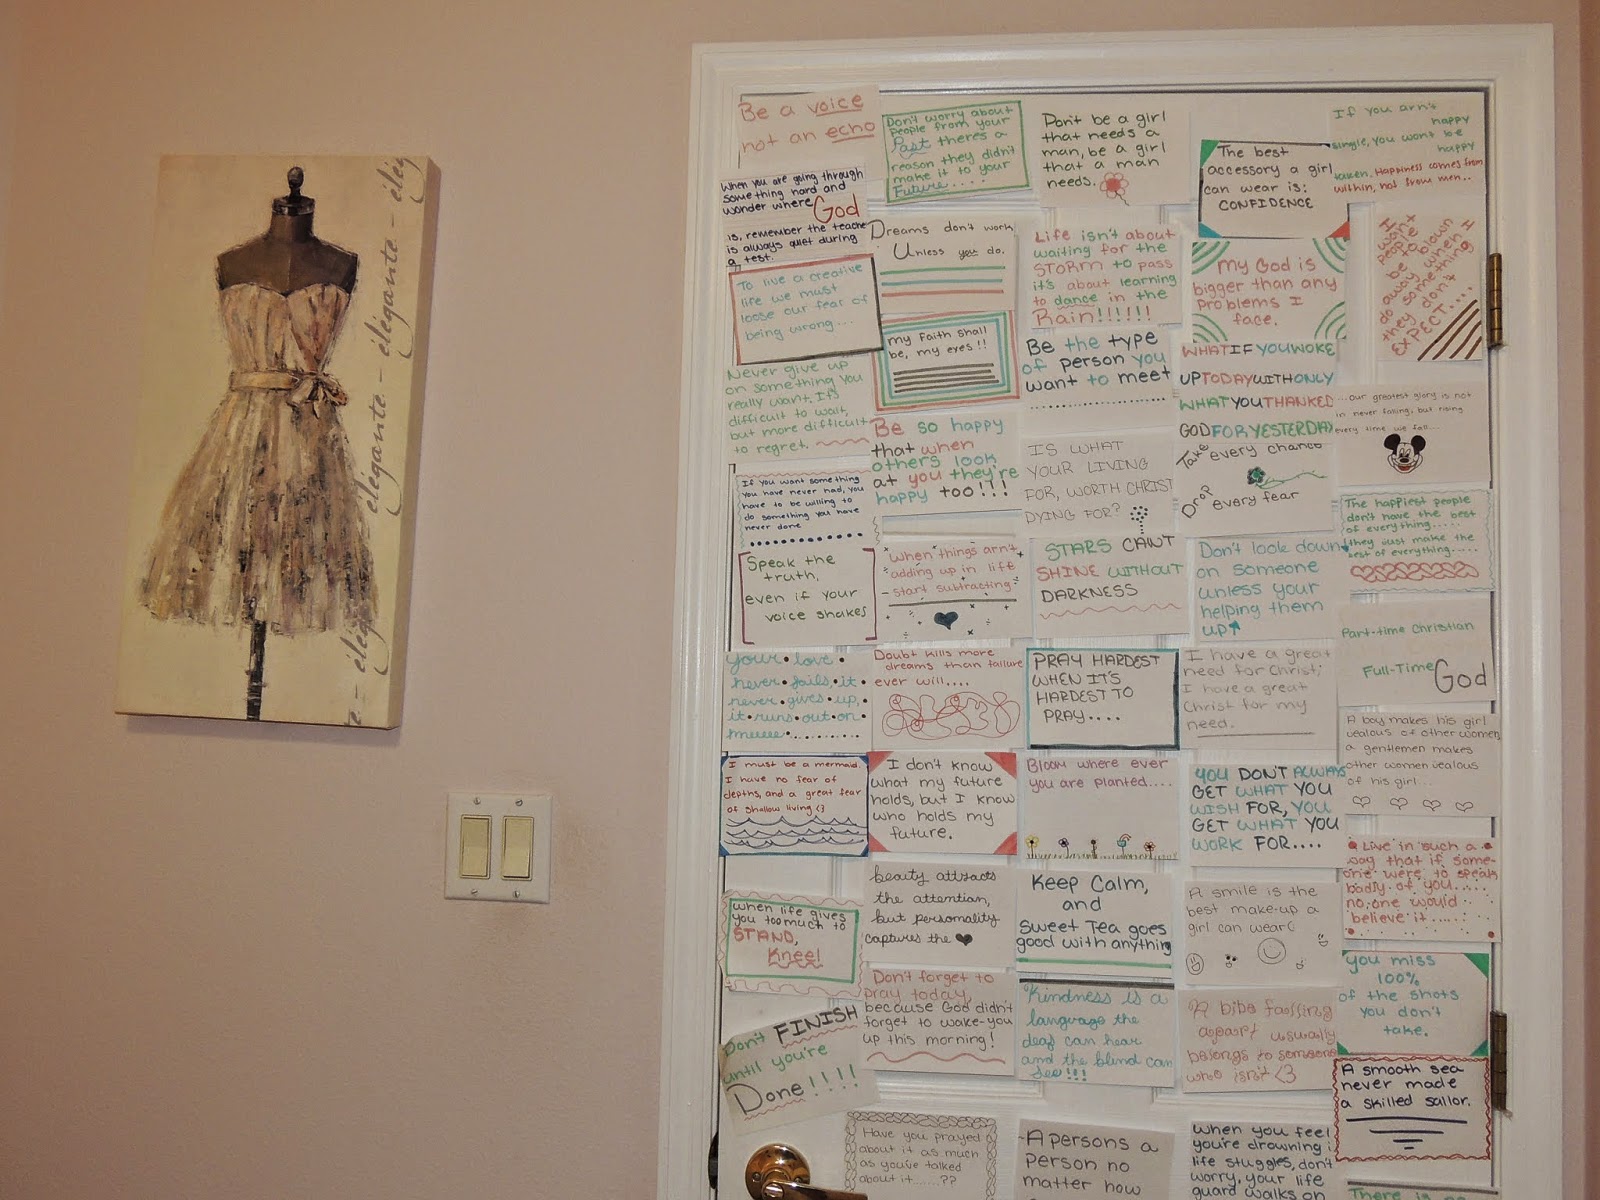 élégante - élégante - élég
Be a voice
not an echo
Don't worry about
people from your
Past there's a
reason they didn't
make it to your
Future.....
Don't be a girl
that needs a
man, be a girl
that a man
needs.
The best
accessory a girl
can wear is:
CONFIDENCE
If you arn't
happy
single, you wont be
happy
taken. Happiness comes from
within, not from men...
When you are going through
something hard and
wonder where God
is, remember the teacher
is always quiet during
a test.
Dreams don't work
Unless you do.
Life isn't about
waiting for the
STORM to pass
it's about learning
to dance in the
Rain!!!!!!
My God is
bigger than any
problems I
face.
I want
people
to be
blown
away when I
do something
they don't
EXPECT....
To live a creative
life we must
loose our fear of
being wrong...
my Faith shall
be, my eyes!!
Be the type
of person you
want to meet
WHAT IF YOU WOKE
UP TODAY WITH ONLY
WHAT YOU THANKED
GOD FOR YESTERDAY
...our greatest glory is not
in never falling, but rising
every time we fall...
Never give up
on something you
really want. It's
difficult to wait,
but more difficult
to regret.
Be so happy
that when
others look
at you they're
happy too!!!
IS WHAT
YOUR LIVING
FOR, WORTH CHRIST
DYING FOR?
Take every chance
Drop every fear
The happiest people
don't have the best
of everything.....
they just make the
best of everything.....
If you want something
you have never had, you
have to be willing to
do something you have
never done
Speak the
truth,
even if your
voice shakes
when things arn't
adding up in life
start subtracting!
STARS CAN'T
SHINE WITHOUT
DARKNESS
Don't look down
on someone
unless your
helping them
up
Part-time Christian
Full-Time God
your love
never fails, it
never gives up,
it runs out on
meeee..........
Doubt kills more
dreams than failure
ever will....
PRAY HARDEST
WHEN IT'S
HARDEST TO
PRAY....
I have a great
need for Christ;
I have a great
Christ for my
need.
A boy makes his girl
jealous of other women,
a gentlemen makes
other women jealous
of his girl...
I must be a mermaid.
I have no fear of
depths, and a great fear
of shallow living <3
I don't know
what my future
holds, but I know
who holds my
future.
Bloom where ever
you are planted....
YOU DON'T ALWAYS
GET WHAT YOU
WISH FOR, YOU
GET WHAT YOU
WORK FOR....
Live in such a
way that if some-
one were to speak
badly of you.....
no, one would
believe it.....
when life gives
you too much to
STAND,
Kneel
beauty attracts
the attention,
but personality
captures the
Keep Calm,
and
Sweet Tea goes
good with anything
A smile is the
best make-up a
girl can wear
you miss
100%
of the shots
you don't
take.
Don't FINISH
until you're
Done!!!!
Don't forget to
pray today,
because God didn't
forget to wake-you
up this morning!
Kindness is a
language the
deaf can hear
and the blind can
See!!!
A bible falling
apart usually
belongs to someone
who isn't <3
A smooth sea
never made
a skilled sailor.
Have you prayed
about it as much
as you've talked
about it.......??
A persons a
person no
matter how
when you feel
you're drowning in
life stuggles, don't
worry, your life
guard walks on
There is